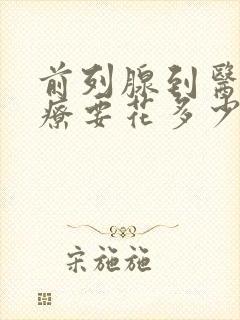 前列腺到醫
療要花多少
宋施施